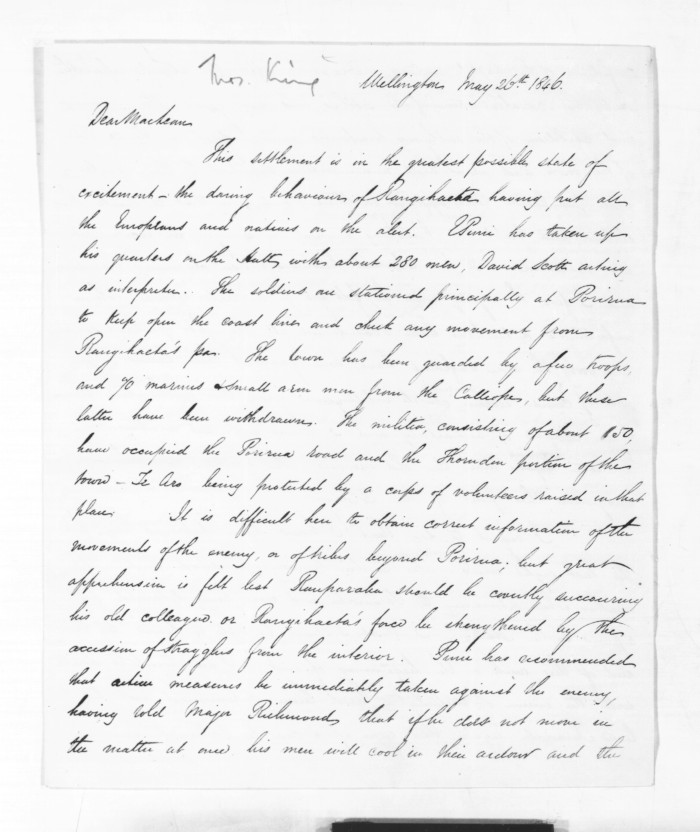 Thos. King
Wellington May 26th 1846.
Dear Maclean
This settlement is in the greatest possible state of
excitement - the daring behaviour of Rangihaeata having put all
the Europeans and natives on the alert. EPuni has taken up
his quarters on the Hutt, with about 280 men, David Scott acting
as interpreter. The soldiers are stationed principally at Porirua
to keep open the coast line and check any movement from
Rangihaeta's pa. The town has been guarded by a few troops,
and 70 marines & small arm men from the Calliope, but these
latter have been withdrawn. The militia, consisting of about 150,
have occupied the Porirua road and the Thorndon portion of the
town - Te Aro being protected by a corps of volunteers raised in that
place. It is difficult here to obtain correct information of the
movements of the enemy, or of tribes beyond Porirua; but great
apprehension is felt lest Rauparaha should be covertly succouring
his old colleague or Rangihaeta's force be strengthened by the
accession of stragglers from the interior. Puni has recommended
that active measures be immediately taken against the enemy,
having told Major Richmond that if he does not move in
the matter at once his men will cool in their ardour and the